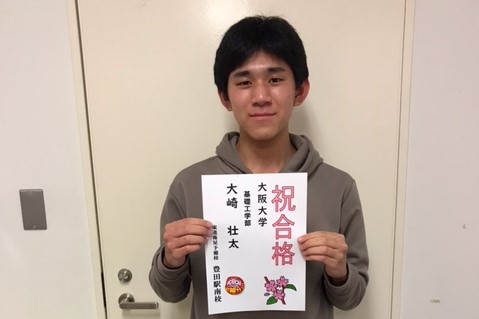 祝合格
大阪大学
基礎工学部
大崎 壮太
東進衛星予備校 豊田駅南校